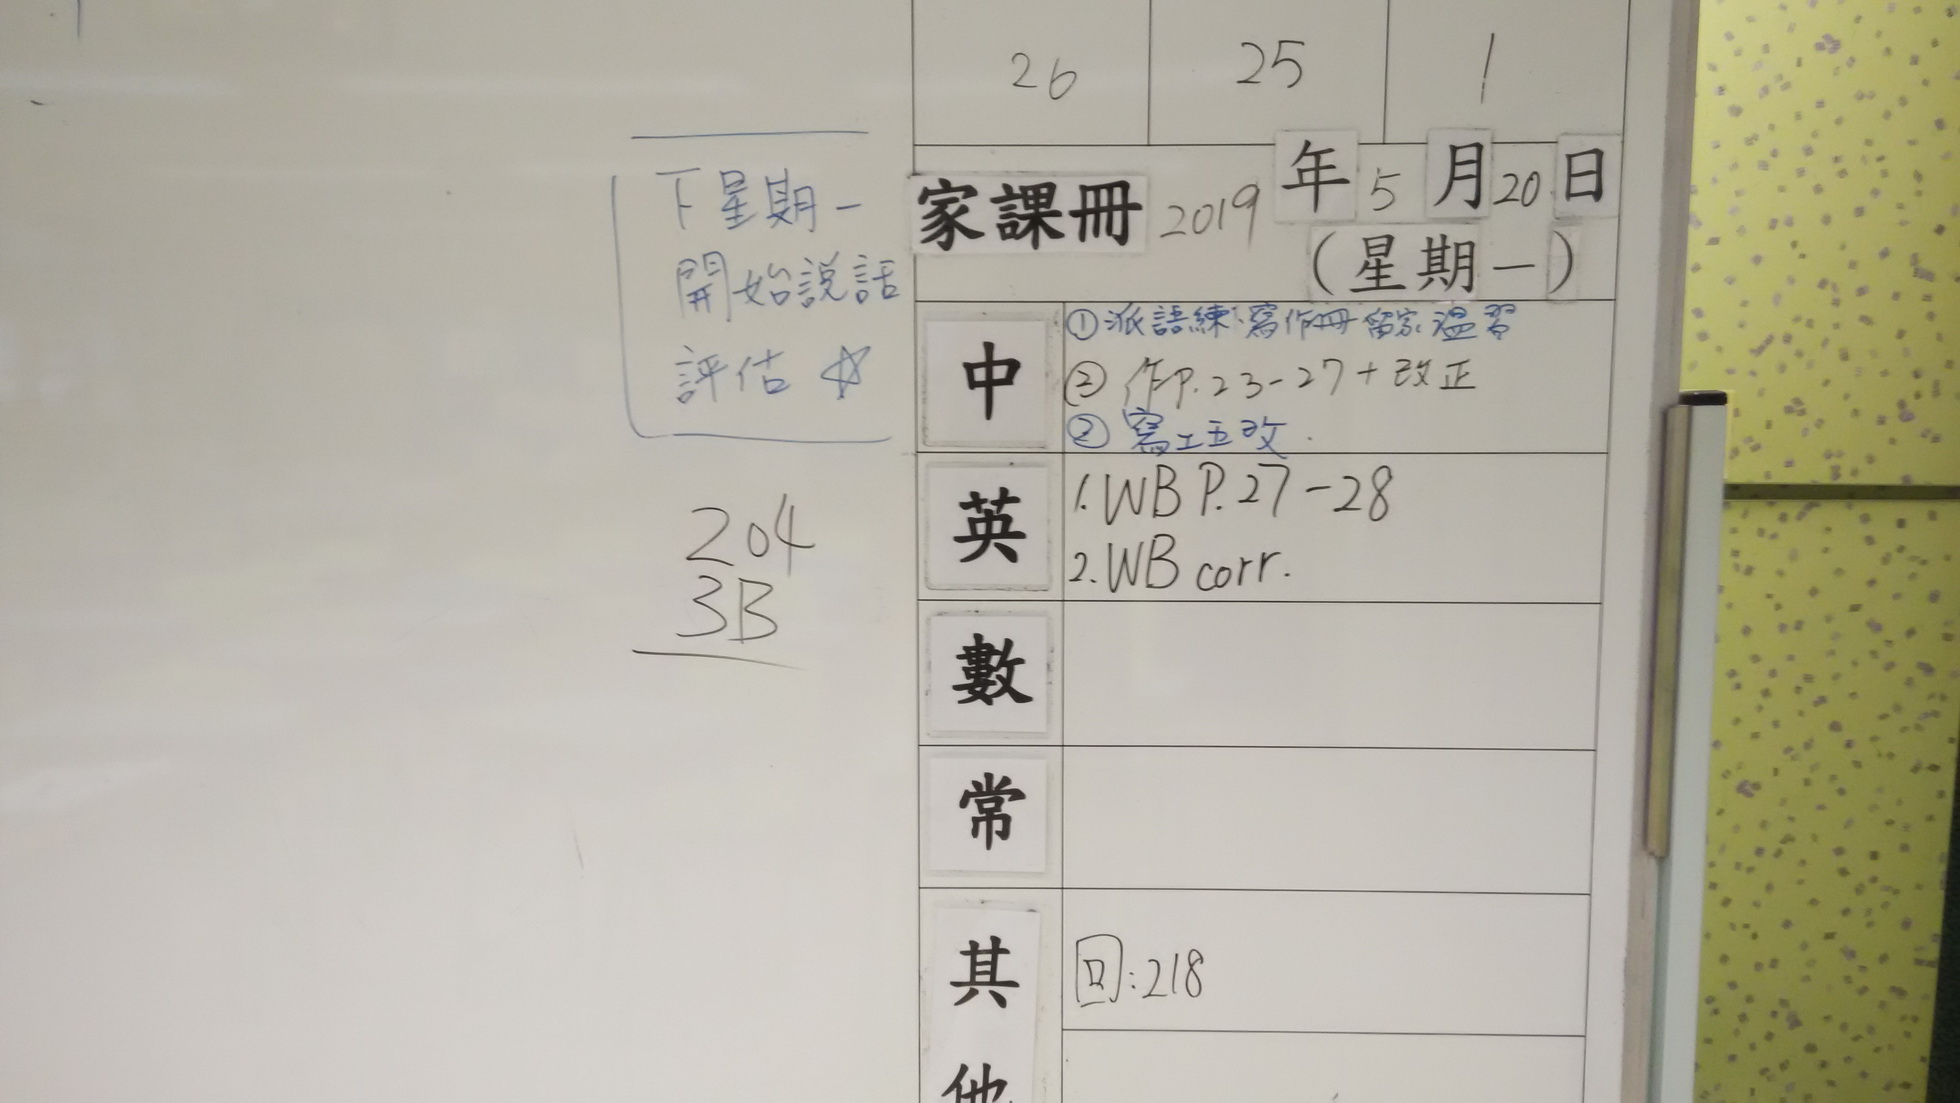 26 25 1
家課冊 2019年5月20日
(星期一)
下星期一
開始說話
評估☆
204
3B
中
①派語練、寫作冊留家溫習
② 作P.23-27+改正
② 寫工五改.
英
1. WB P.27-28
2. WB corr.
數
常
其他
回:218